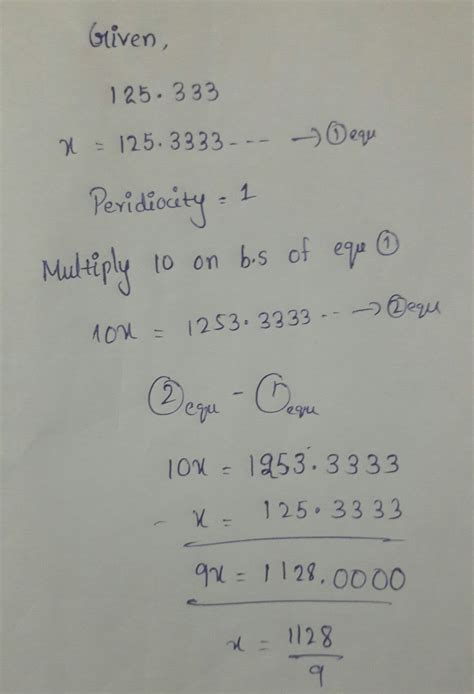 Given,
125.333
x = 125.3333--- → ① equ
Peridiocity = 1
Multiply 10 on b.s of equ ①
10x = 1253.3333-- → ② equ
② equ - ① equ
10x = 1253.3333
- x = 125.3333
9x = 1128.0000
x = 1128
9